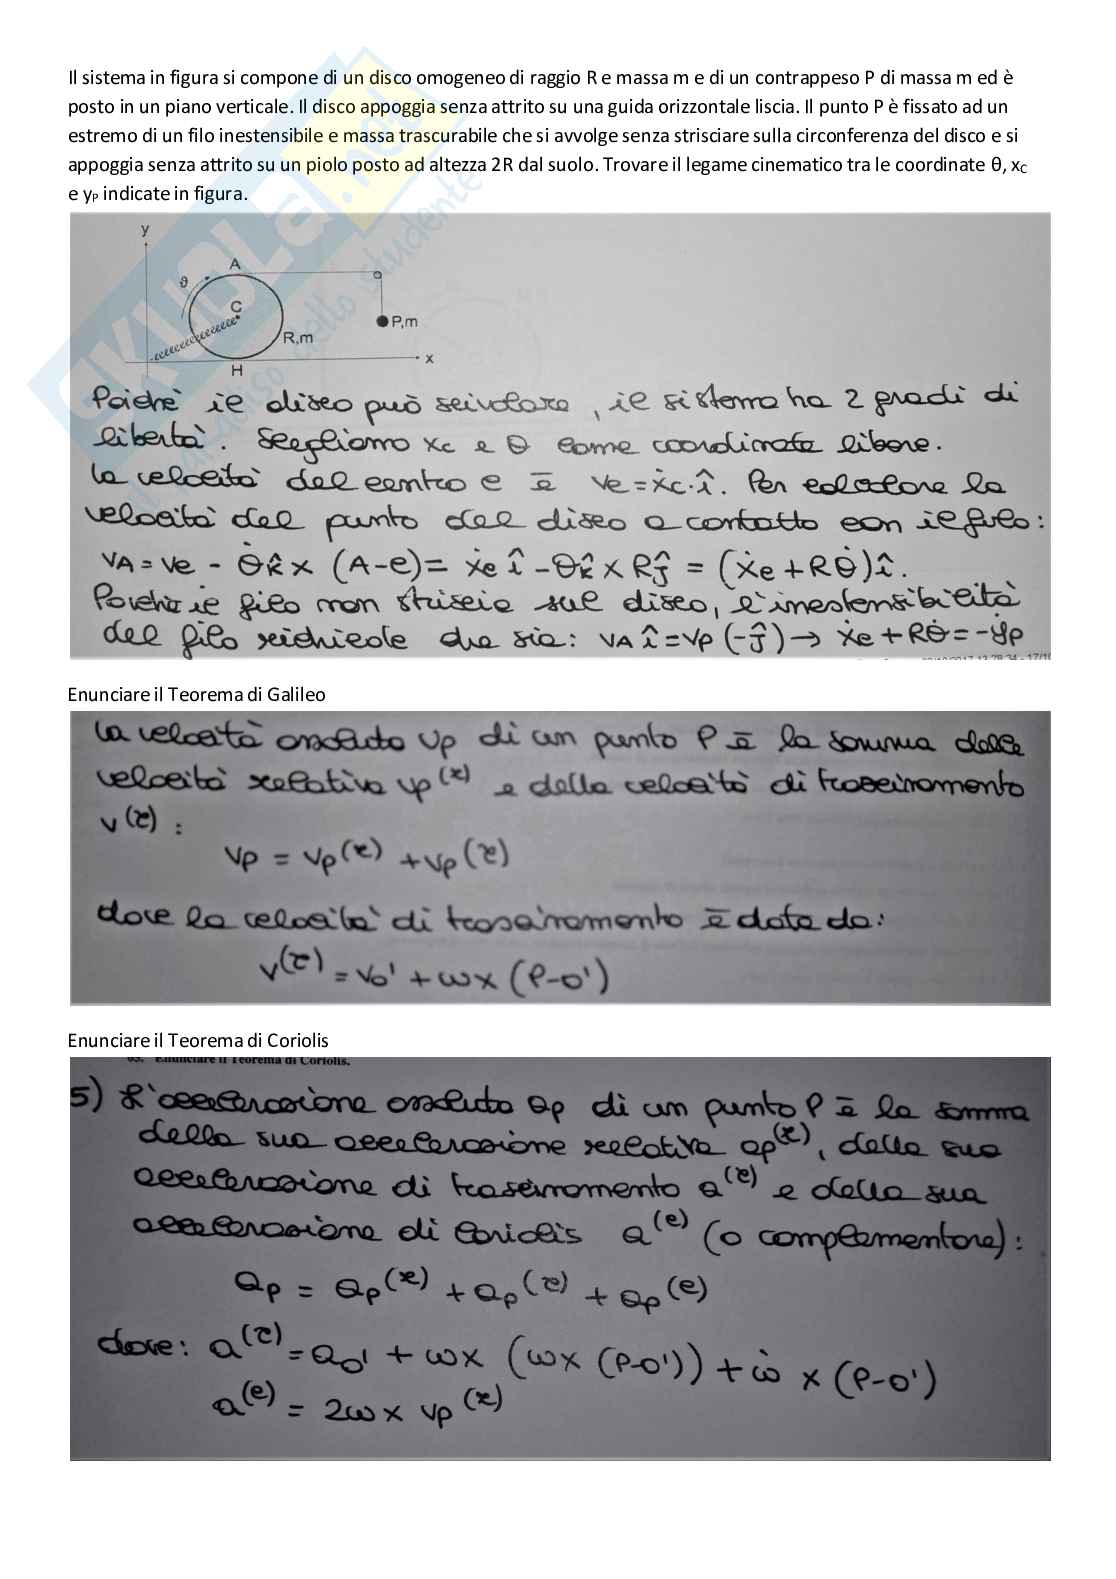 Il sistema in figura si compone di un disco omogeneo di raggio R e massa m e di un contrappeso P di massa m ed è
posto in un piano verticale. Il disco appoggia senza attrito su una guida orizzontale liscia. Il punto P è fissato ad un
estremo di un filo inestensibile e massa trascurabile che si avvolge senza strisciare sulla circonferenza del disco e si
appoggia senza attrito su un piolo posto ad altezza 2R dal suolo. Trovare il legame cinematico tra le coordinate θ, xC
e yP indicate in figura.
y
A
ϑ
C
P,m
R,m
x
H
Poichè il disco può scivolare, il sistema ha 2 gradi di
libertà. Scegliamo xc e θ come coordinate libere.
la velocità del centro c è vc = ẋc·î. Per calcolare la
velocità del punto del disco a contatto con il filo:
vA = vc - θ̇k̂ × (A-c) = ẋc î - θ̇k̂ × Rĵ = (ẋc + Rθ̇)î.
Poichè il filo non striscia sul disco, l'inestensibilità
del filo richiede che sia: vA î = vp (-ĵ) → ẋc + Rθ̇ = -ẏp
Enunciare il Teorema di Galileo
la velocità assoluta vp di un punto P è la somma della
velocità relativa vp(r) e della velocità di trascinamento
v(τ) :
vp = vp(r) + vp(τ)
dove la velocità di trascinamento è data da:
v(τ) = vo' + ω × (P-o')
Enunciare il Teorema di Coriolis
Enunciare il Teorema di Coriolis.
5) L'accelerazione assoluta ap di un punto P è la somma
della sua accelerazione relativa ap(r), della sua
accelerazione di trascinamento a(τ) e della sua
accelerazione di Coriolis a(c) (o complementare):
ap = ap(r) + ap(τ) + ap(c)
dove: a(τ) = ao' + ω × (ω × (P-o')) + ω̇ × (P-o')
a(c) = 2ω × vp(r)